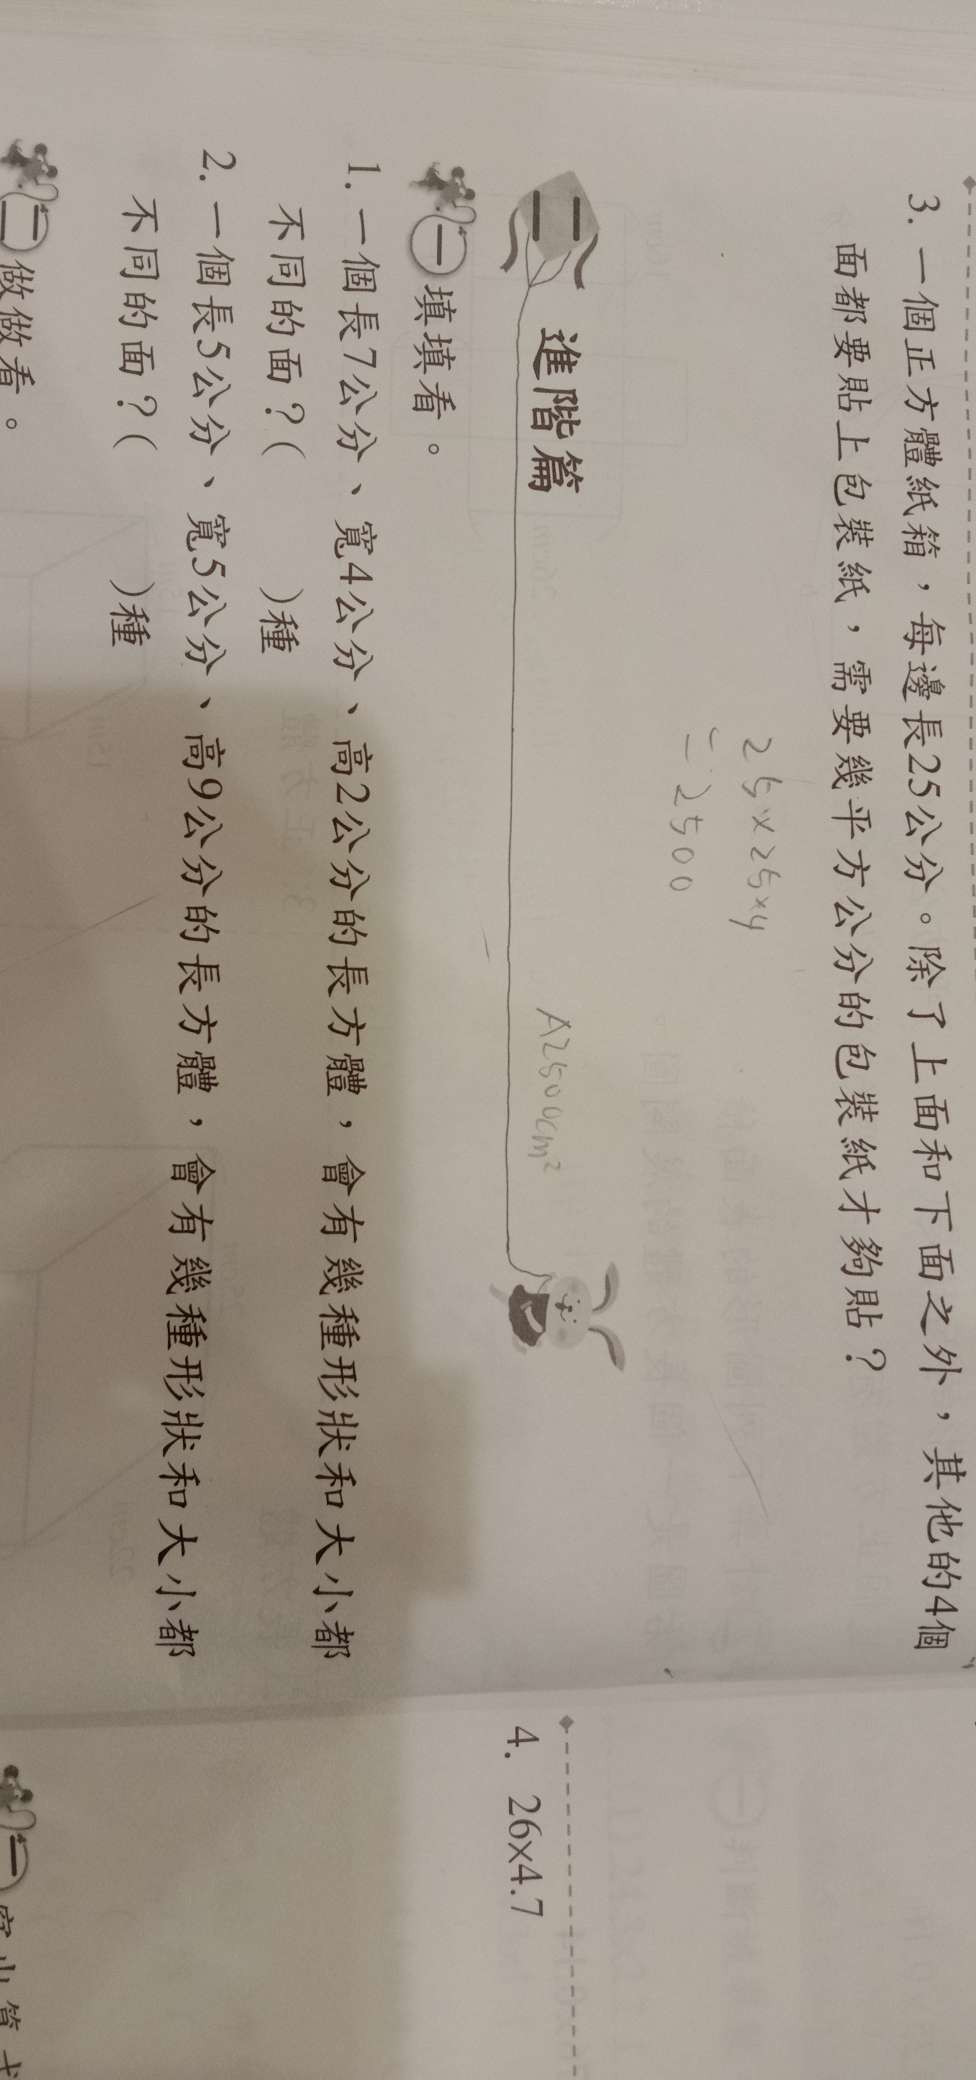 3. 一個正方體紙箱，每邊長25公分。除了上面和下面之外，其他的4個
面都要貼上包裝紙，需要幾平方公分的包裝紙才夠貼？
25×25×4
=2500
A2500cm²
二 進階篇
一 填填看。
1. 一個長7公分、寬4公分、高2公分的長方體，會有幾種形狀和大小都
不同的面？( )種
2. 一個長5公分、寬5公分、高9公分的長方體，會有幾種形狀和大小都
不同的面？( )種
二 做做看。
4. 26×4.7
一